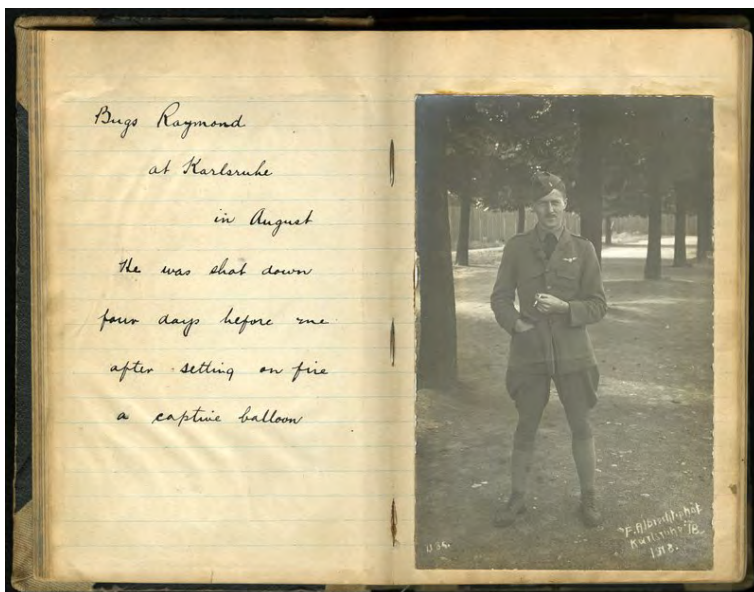 Bugs Raymond
at Karlsruhe
in August
He was shot down
four days before me
after setting on fire
a captive balloon
F. Albrecht phot
Karlsruhe i/B.
1918.